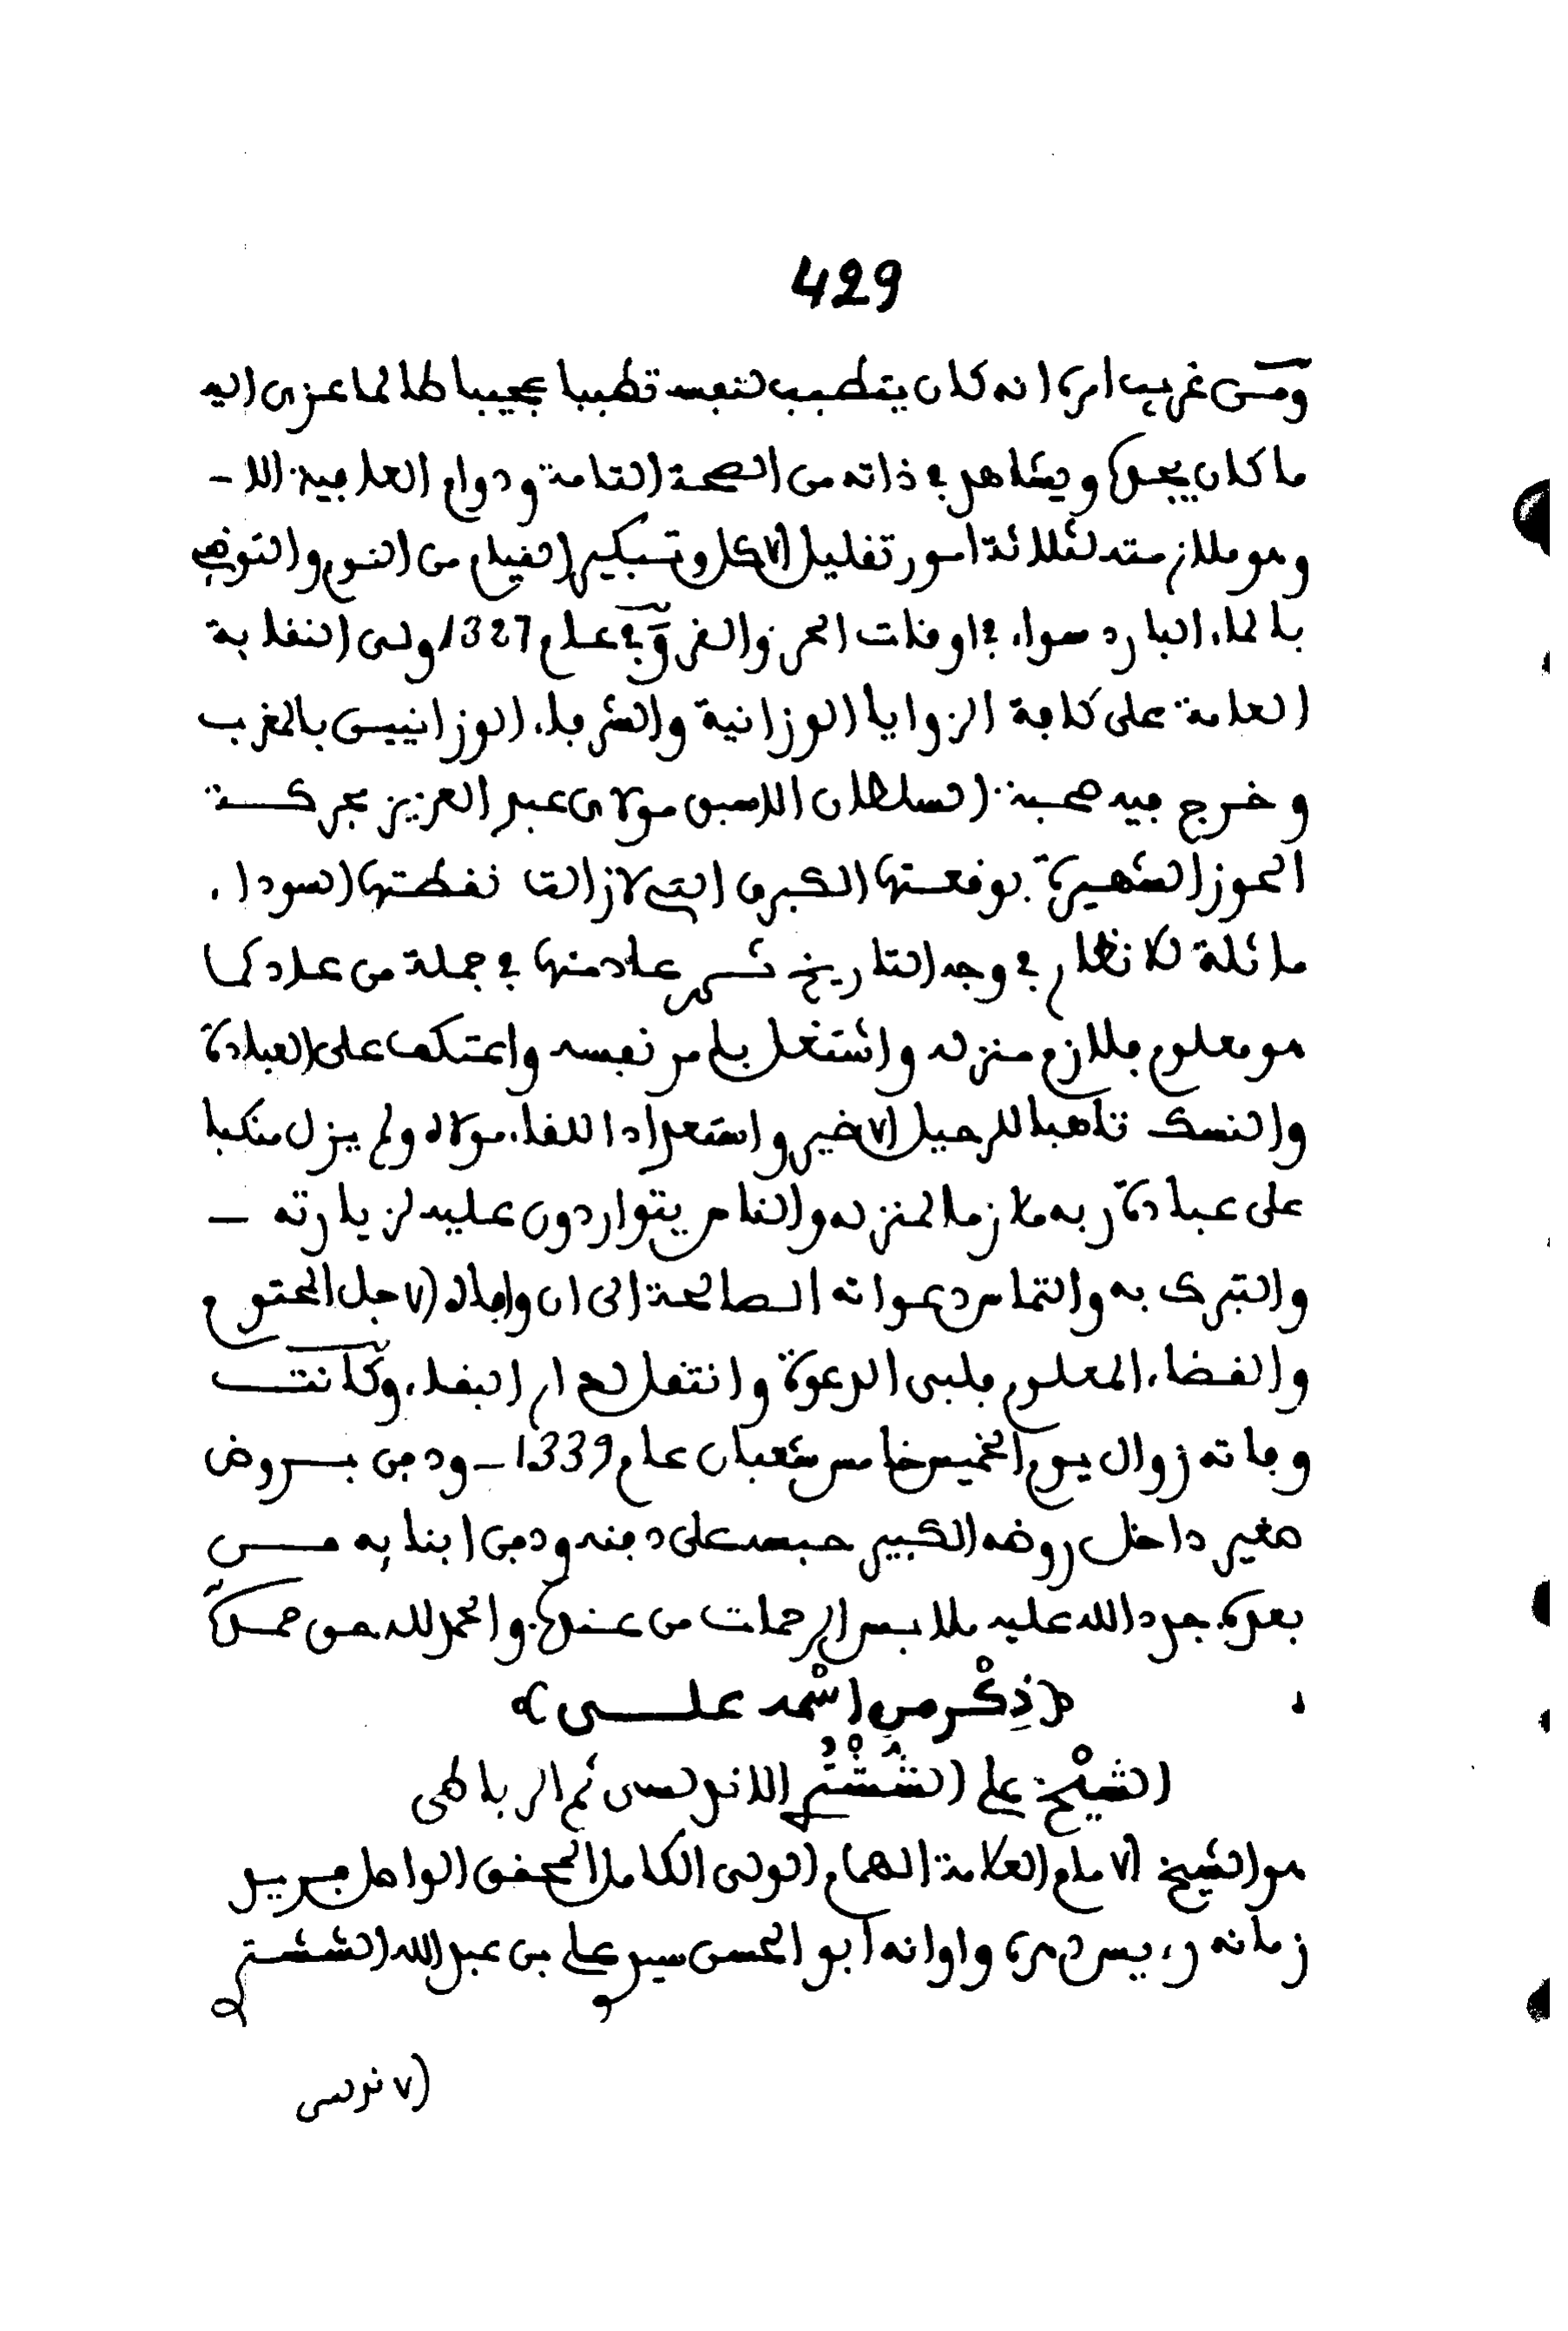 429
ومن غريب امره انه كان يتطبب لنفسه تطببا عجيبا طالما عزى اليه
ما كان يجده ويشاهد في ذاته من الصحة التامة ودوام العافية اللا -
وهو ملازمته لثلاثة امور تقليل الاكل وتبكير الفيام من النوم والتوضي
بالماء البارد سواء في اوقات الحر والقر وفي عام 1327 ولى النقابة
العامة على كافة الزوايا الوزانية والشرفاء الوزانيين بالمغرب
وخرج فيه صحبة السلطان الاسبق مولاى عبد العزيز بحركة
الحوز الشهيرة بوقعتها الكبرى التي لازالت نقطتها السوداء
ماثلة للانظار في وجه التاريخ ثم عاد منها في جملة من عاد كما
هو معلوم فلازم منزله واشتغل بامر نفسه واعتكف على العبادة
والنسك تاهبا للرحيل الاخير واستعدادا للقاء مولاه ولم يزل منكبا
على عبادة ربه ملازما لمنزله والناس يتواردون عليه لزيارته -
والتبرك به والتماس دعواته الصالحة الى ان وافاه الاجل المحتوم
والقضاء المعلوم فلبى الدعوة وانتقل لدار البقاء وكانت
وفاته زوال يوم الخميس خامس شعبان عام 1339 - ودفن بروض
صغير داخل روضه الكبير حبسه على دفنه ودفن ابنايه من
بعده. جدد الله عليه ملابس الرحمات من عنده. والحمد لله حق حمده
(ذِكْر من اسْمه علي)
الشيْخ علي الشُشْتُري الاندلسى ثم الرباطى
هو الشيخ الامام العلامة الهمام الولى الكامل المحقق الواصل فريد
زمانه ورءيس دهره واوانه أبو الحسن سيدي علي بن عبد الله الششتري
الاندلسى